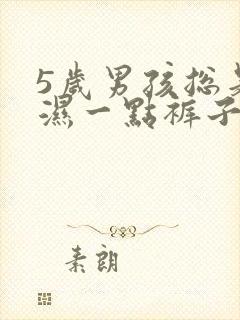 5歲男孩總
濕一點褲子
素朗